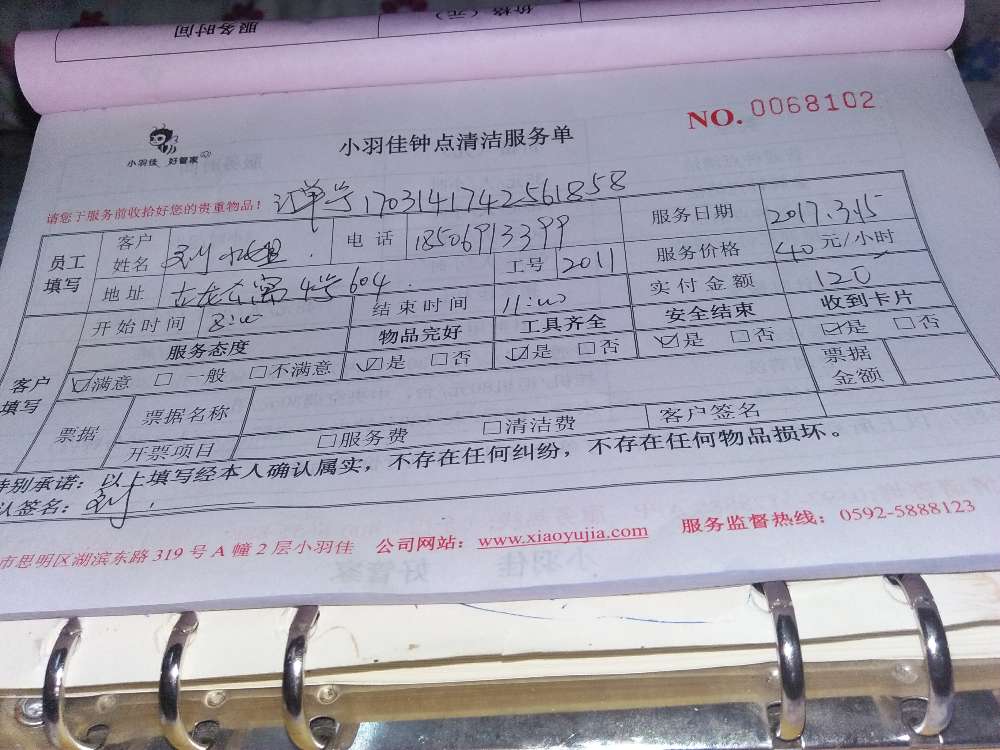 服务时间
价格（元）
NO. 0068102
小羽佳 好管家
小羽佳钟点清洁服务单
请您于服务前收拾好您的贵重物品！ 订单号 1703141742561858
员工填写 客户姓名 刘 电话 18506913399 服务日期 2017.3.15
地址 4号604 工号 2011 服务价格 40元/小时
开始时间 8:00 结束时间 11:00 实付金额 120
客户填写 服务态度 物品完好 工具齐全 安全结束 收到卡片
☑满意 □一般 □不满意 ☑是 □否 ☑是 □否 ☑是 □否 ☑是 □否
票据 票据名称 票据金额
开票项目 □服务费 □清洁费 客户签名
特别承诺：以上填写经本人确认属实，不存在任何纠纷，不存在任何物品损坏。
认签名：刘
市思明区湖滨东路319号A幢2层小羽佳 公司网站：www.xiaoyujia.com 服务监督热线：0592-5888123